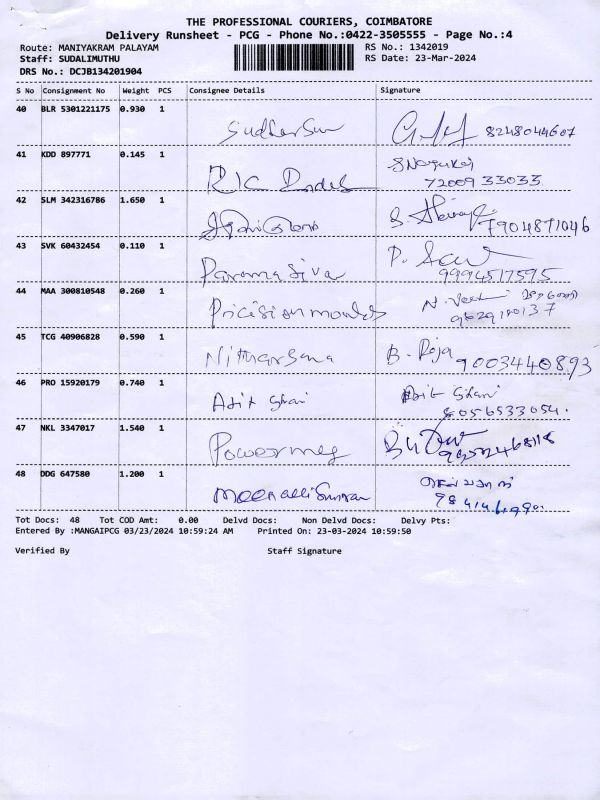 THE PROFESSIONAL COURIERS, COIMBATORE
Delivery Runsheet - PCG - Phone No.:0422-3505555 - Page No.:4
Route: MANIYAKRAM PALAYAM RS No.: 1342019
Staff: SUDALIMUTHU RS Date: 23-Mar-2024
DRS No.: DCJB134201904
S No Consignment No Weight PCS Consignee Details Signature
40 BLR 5301221175 0.930 1
8248044607
41 KDD 897771 0.145 1
7200933033
42 SLM 342316786 1.650 1
7904871046
43 SVK 60432454 0.110 1 Paramasiva P.
9994517595
44 MAA 300810548 0.260 1 Pricision moulds
45 TCG 40906828 0.590 1 B. Roja 9003440893
46 PRO 15920179 0.740 1
8056533054.
47 NKL 3347017 1.540 1
48 DDG 647580 1.200 1
Tot Docs: 48 Tot COD Amt: 0.00 Delvd Docs: Non Delvd Docs: Delvy Pts:
Entered By :MANGAIPCG 03/23/2024 10:59:24 AM Printed On: 23-03-2024 10:59:50
Verified By Staff Signature